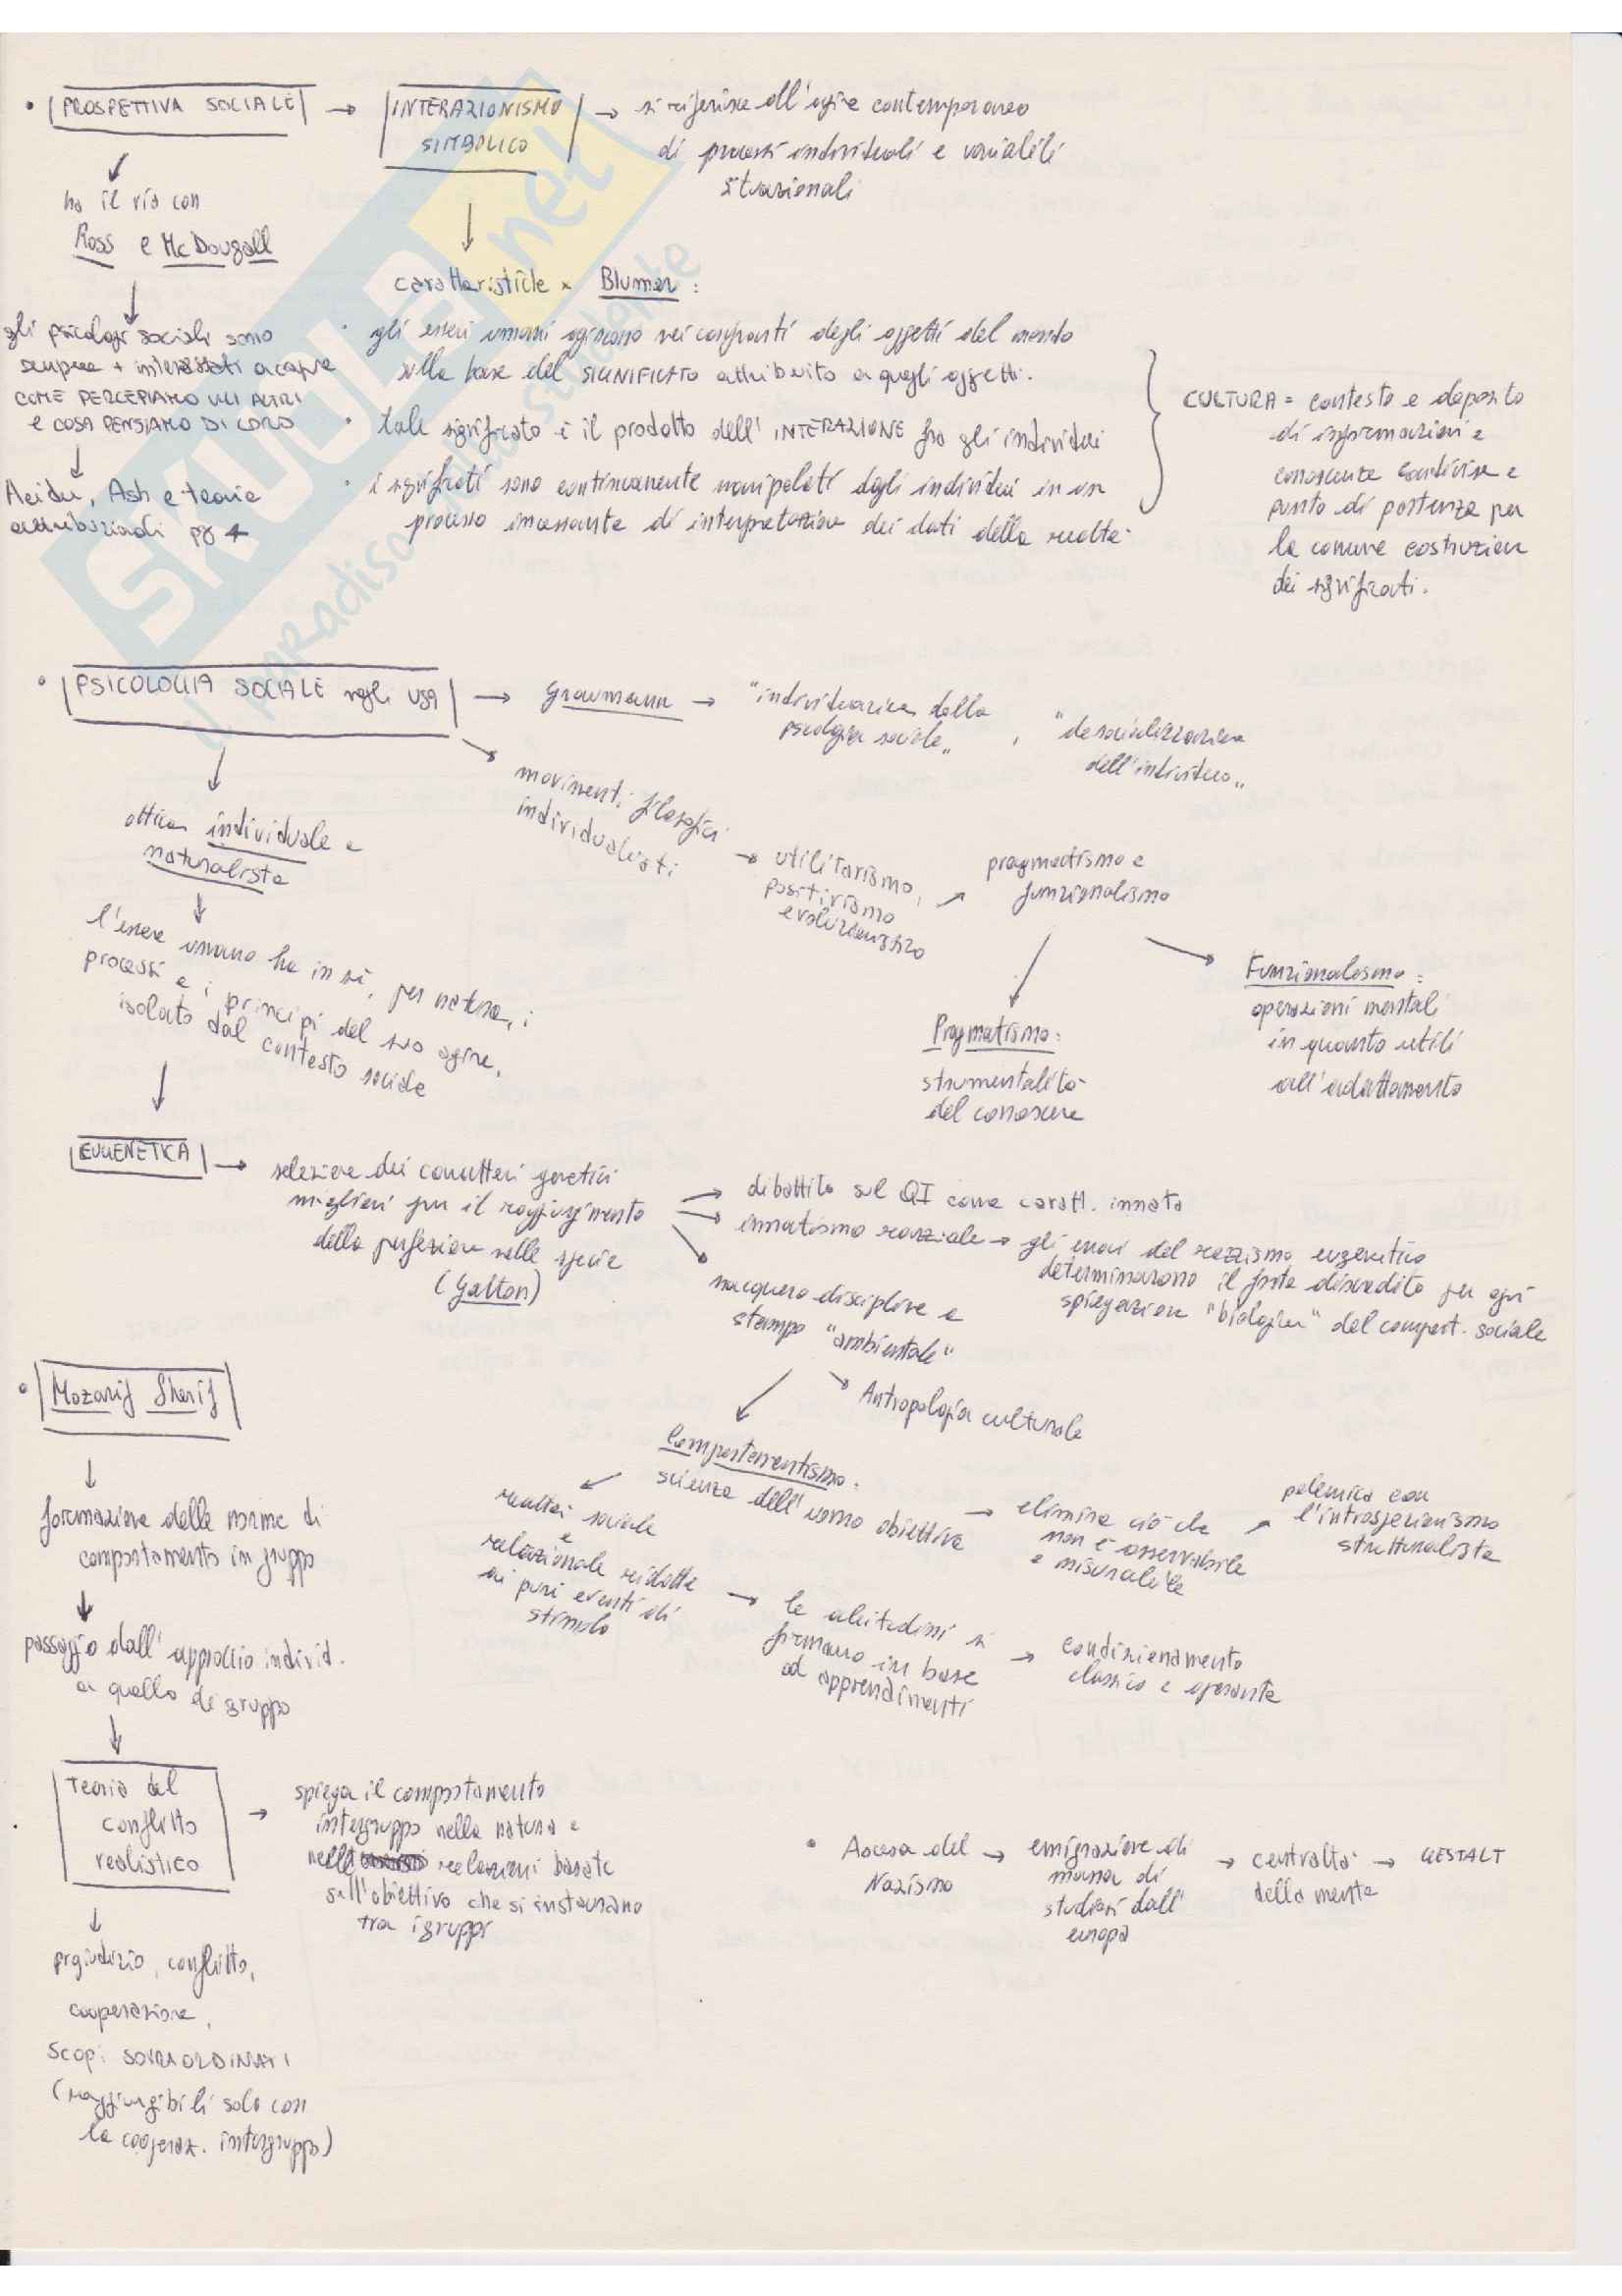 • PROSPETTIVA SOCIALE →
INTERAZIONISMO
SIMBOLICO
→ si riferisce all'agire contemporaneo
di processi individuali e variabili
situazionali
ha il via con
Ross e McDougall
gli psicologi sociali sono
sempre + interessati a capire
COME PERCEPIAMO GLI ALTRI
E COSA PENSIAMO DI LORO
Heider, Ash e teorie
attribuzionali pg 4
caratteristiche x Blumer:
• gli esseri umani agiscono nei confronti degli oggetti del mondo
sulla base del SIGNIFICATO attribuito a quegli oggetti.
• tale significato è il prodotto dell'INTERAZIONE fra gli individui
• i significati sono continuamente manipolati dagli individui in un
processo incessante di interpretazione dei dati della realtà.
CULTURA = contesto e deposito
di informazioni e
conoscenze condivise e
punto di partenza per
la comune costruzione
dei significati.
• PSICOLOGIA SOCIALE negli USA → Graumann → "individuazione della
psicologia sociale", "desocializzazione
dell'individuo"
movimenti filosofici
individualisti
→ utilitarismo,
positivismo
evoluzionistico
pragmatismo e
funzionalismo
Pragmatismo:
strumentalità
del conoscere
Funzionalismo:
operazioni mentali
in quanto utili
all'adattamento
ottica individuale e
naturalista
l'essere umano ha in sé, per natura, i
processi e i principi del suo agire,
isolato dal contesto sociale
EUGENETICA →
selezione dei caratteri genetici
migliori per il raggiungimento
della perfezione nelle specie
(Galton)
→ dibattito sul QI come caratt. innato
→ innatismo razziale → gli errori del razzismo eugenetico
determinarono il forte discredito per ogni
spiegazione "biologica" del comport. sociale
nacquero discipline a
stampo "ambientale"
Antropologia culturale
Comportamentismo:
scienza dell'uomo obiettiva
→ elimina ciò che
non è osservabile
e misurabile
→ polemica con
l'introspezionismo
strutturalista
realtà sociale
e
relazionale ridotta
ai puri eventi di
stimolo
→ le abitudini si
formano in base
ad apprendimenti
→ condizionamento
classico e operante
• Mozarif Sherif
formazione delle norme di
comportamento in gruppo
passaggio dall'approccio individ.
a quello di gruppo
Teoria del
conflitto
realistico
→ spiega il comportamento
intergruppo nella natura e
nelle relazioni basate
sull'obiettivo che si instaurano
tra i gruppi
prgiudizio, conflitto,
cooperazione,
scopi SOVRAORDINATI
(raggiungibili solo con
la cooperaz. intergruppo)
• Ascesa del
Nazismo
→ emigrazione di
massa di
studiosi dall'
europa
→ centralità
della mente
→ GESTALT
SKUOLA.net
il paradiso dello studente